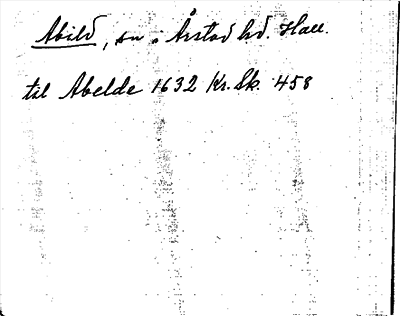 Abild, sn i Årstad hd. Hall.
til Abelde 1632 Kr. Sk. 458